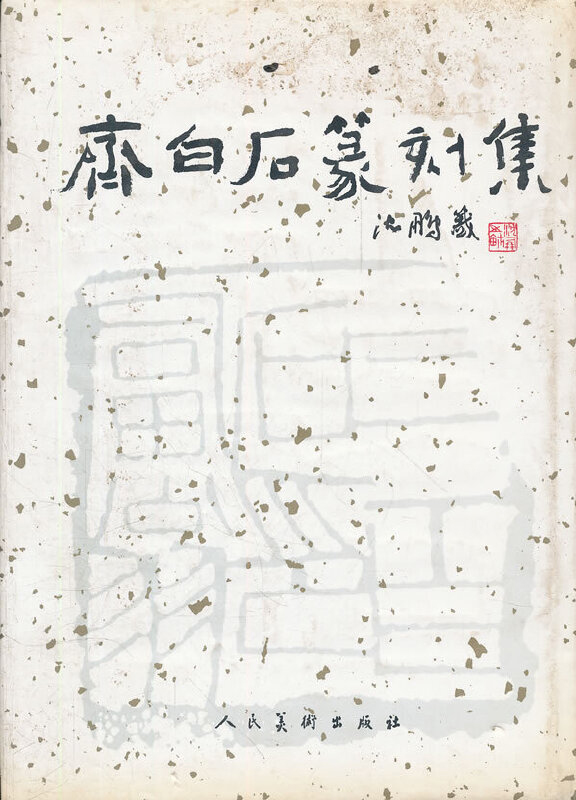 齊白石篆刻集
沈鹏籤
人民美術出版社